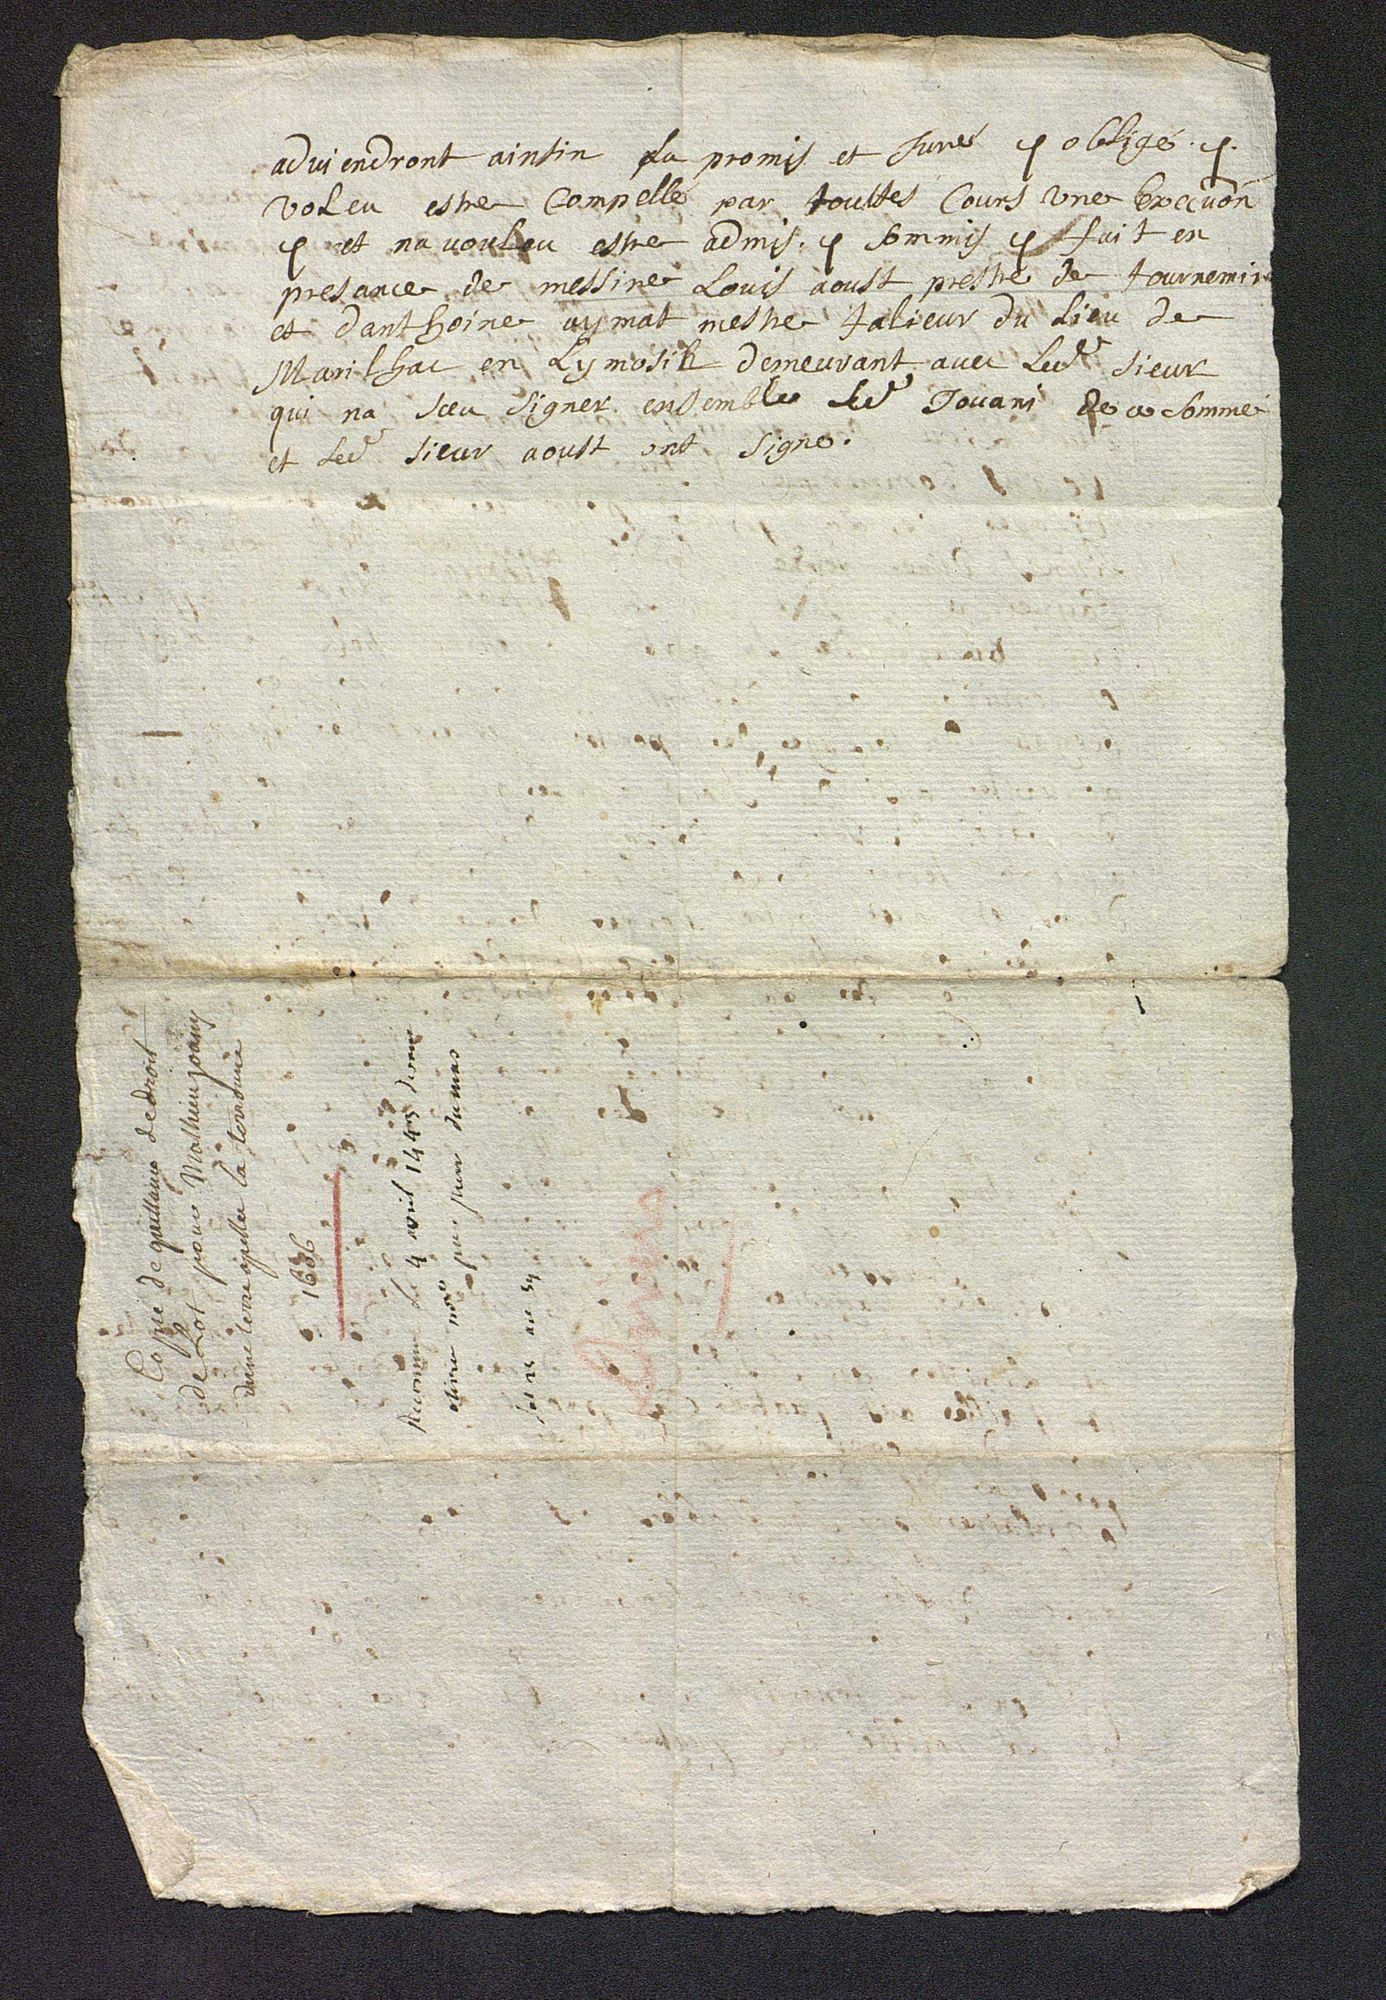 adviendront ainsin La promis et Jure ꝑ obligé. ꝑ.
voleu estre Compellé par touttes Cours une Execuōn
ꝑ et na vouleu estre admis. ꝑ sommis ꝑ fait en
presance de messire Louis aoust prestre de tournemire
et d'anthoine aymat mestre talieur du Lieu de
Marilhac en Lymosin demeurant avec Led sieur
qui na sceu signer ensemble Led Jouani de ce sommé
et Led sieur aoust ont signe.
Copie de quittance de droit
de Lot pour Mathieu Joany
dune terre apellee la
1686
Reconnu Le 4 avril 1445 devant
no^re par pierre dumas